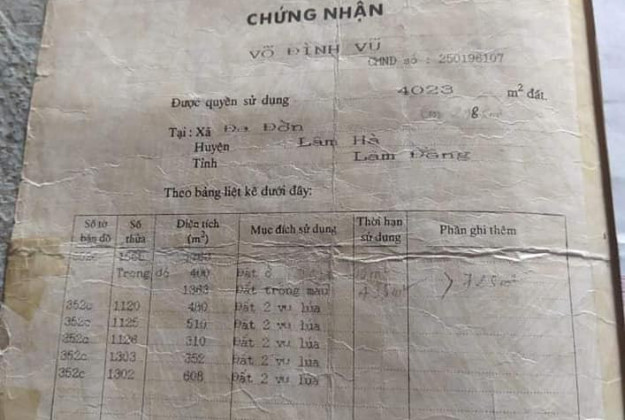 CHỨNG NHẬN
VÕ ĐÌNH VŨ
CMND số : 250196107
Được quyền sử dụng 4023 m² đất
Tại : Xã Đa Đờn
Huyện Lâm Hà
Tỉnh Lam Đồng
Theo bảng liệt kê dưới đây:
Số tờ bản đồ Số thửa Diện tích (m²) Mục đích sử dụng Thời hạn sử dụng Phần ghi thêm
Trong đó 400 Đất ở
1363 Đất trồng màu
352c 1120 480 Đất 2 vụ lúa
352c 1125 510 Đất 2 vụ lúa
352c 1126 310 Đất 2 vụ lúa
352c 1303 352 Đất 2 vụ lúa
352c 1302 608 Đất 2 vụ lúa